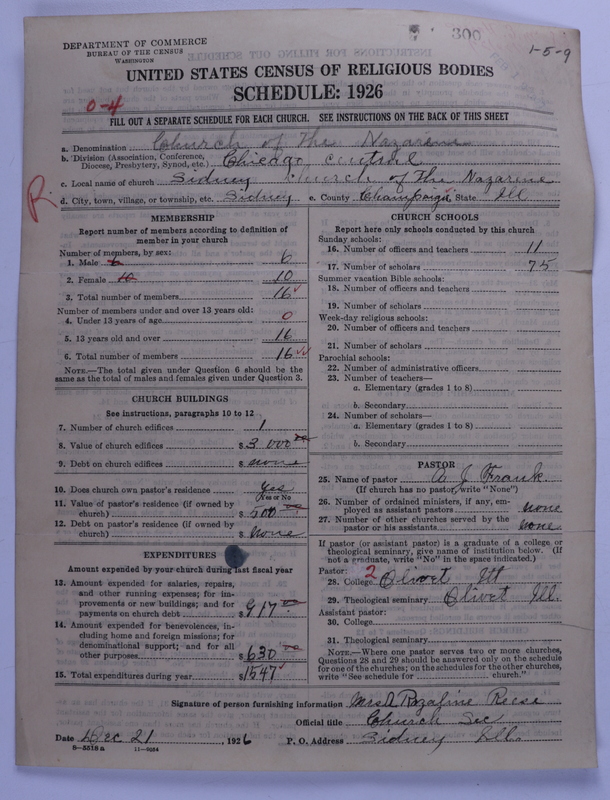 300
1-5-9
DEPARTMENT OF COMMERCE
BUREAU OF THE CENSUS
WASHINGTON
UNITED STATES CENSUS OF RELIGIOUS BODIES
SCHEDULE: 1926
0-4
FILL OUT A SEPARATE SCHEDULE FOR EACH CHURCH. SEE INSTRUCTIONS ON THE BACK OF THIS SHEET
a. Denomination Church of The Nazarene
b. Division (Association, Conference, Diocese, Presbytery, Synod, etc.) Chicago central
c. Local name of church Sidney church of The Nazarene
R.
d. City, town, village, or township, etc. Sidney e. County Champaign State Ill
MEMBERSHIP
Report number of members according to definition of member in your church
Number of members, by sex:
1. Male 6 6
2. Female 10 10
3. Total number of members 16
Number of members under and over 13 years old:
4. Under 13 years of age 0
5. 13 years old and over 16
6. Total number of members 16
NOTE.—The total given under Question 6 should be the same as the total of males and females given under Question 3.
CHURCH BUILDINGS
See instructions, paragraphs 10 to 12
7. Number of church edifices 1
8. Value of church edifices $3 000
9. Debt on church edifices $ none
10. Does church own pastor's residence Yes
(Yes or No)
11. Value of pastor's residence (if owned by church) $ 900
12. Debt on pastor's residence (if owned by church) $ none
EXPENDITURES
Amount expended by your church during last fiscal year
13. Amount expended for salaries, repairs, and other running expenses; for improvements or new buildings; and for payments on church debt $ 917
14. Amount expended for benevolences, including home and foreign missions; for denominational support; and for all other purposes $ 630
15. Total expenditures during year $1547
CHURCH SCHOOLS
Report here only schools conducted by this church
Sunday schools:
16. Number of officers and teachers 11
17. Number of scholars 75
Summer vacation Bible schools:
18. Number of officers and teachers
19. Number of scholars
Week-day religious schools:
20. Number of officers and teachers
21. Number of scholars
Parochial schools:
22. Number of administrative officers
23. Number of teachers—
a. Elementary (grades 1 to 8)
b. Secondary
24. Number of scholars—
a. Elementary (grades 1 to 8)
b. Secondary
PASTOR
25. Name of pastor A J Frank
(If church has no pastor, write "None")
26. Number of ordained ministers, if any, employed as assistant pastors none
27. Number of other churches served by the pastor or his assistants none
If pastor (or assistant pastor) is a graduate of a college or theological seminary, give name of institution below. (If not a graduate, write "No" in the space indicated.)
Pastor: 2
28. College Olivet Ill
29. Theological seminary Olivet Ill.
Assistant pastor:
30. College
31. Theological seminary
NOTE.—Where one pastor serves two or more churches, Questions 28 and 29 should be answered only on the schedule for one of the churches; on the schedules for the other churches, write "See schedule for church."
Signature of person furnishing information Mrs Rozaline Reese
Official title Church Sec
Date Dec 21, 1926 P. O. Address Sidney Ills.
8-5518a 11-9084